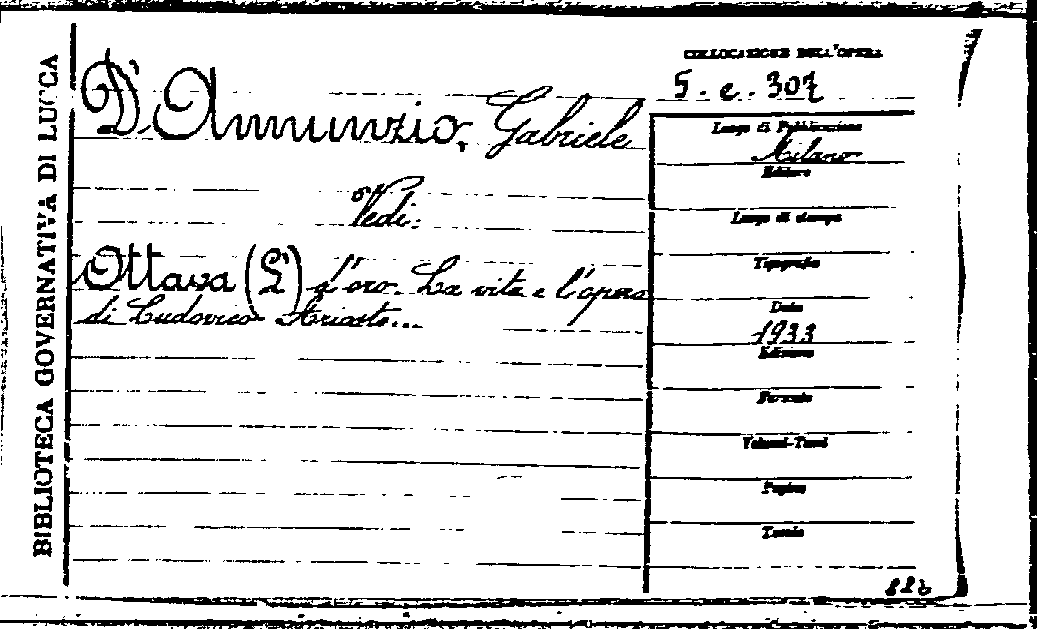 BIBLIOTECA GOVERNATIVA DI LUCCA
D'Annunzio, Gabriele
Vedi:
Ottava (L') d'oro. La vita e l'opera
di Ludovico Ariosto...
COLLOCAZIONE DELL'OPERA
5. e. 307
Luogo di Pubblicazione
Milano
Editore
Luogo di stampa
Tipografia
Data
1933
Edizione
Formato
Volumi-Tomi
Pagine
Tavole